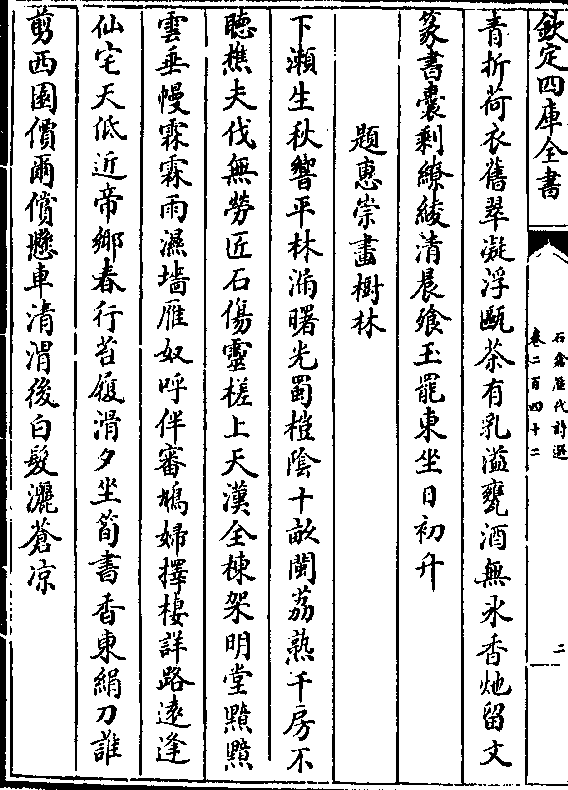 欽定四庫全書
石倉歷代詩選
卷二百四十二
二
青折荷衣舊翠凝浮甌茶有乳溢甕酒無氷香灺留文
篆書囊剩繚綾清晨飱玉罷東坐日初升
題惠崇畫樹林
下瀨生秋響平林滿曙光蜀榿陰十畝閩荔熟千房不
聴樵夫伐無勞匠石傷靈槎上天漢全棟架明堂黯黯
雲垂幔霖霖雨濕墻雁奴呼伴審鳩婦擇棲詳路逺逢
仙宅天低近帝鄉春行苔履滑夕坐荀書香東絹刀誰
剪西園價爾償懸車清渭後白髮灑蒼凉